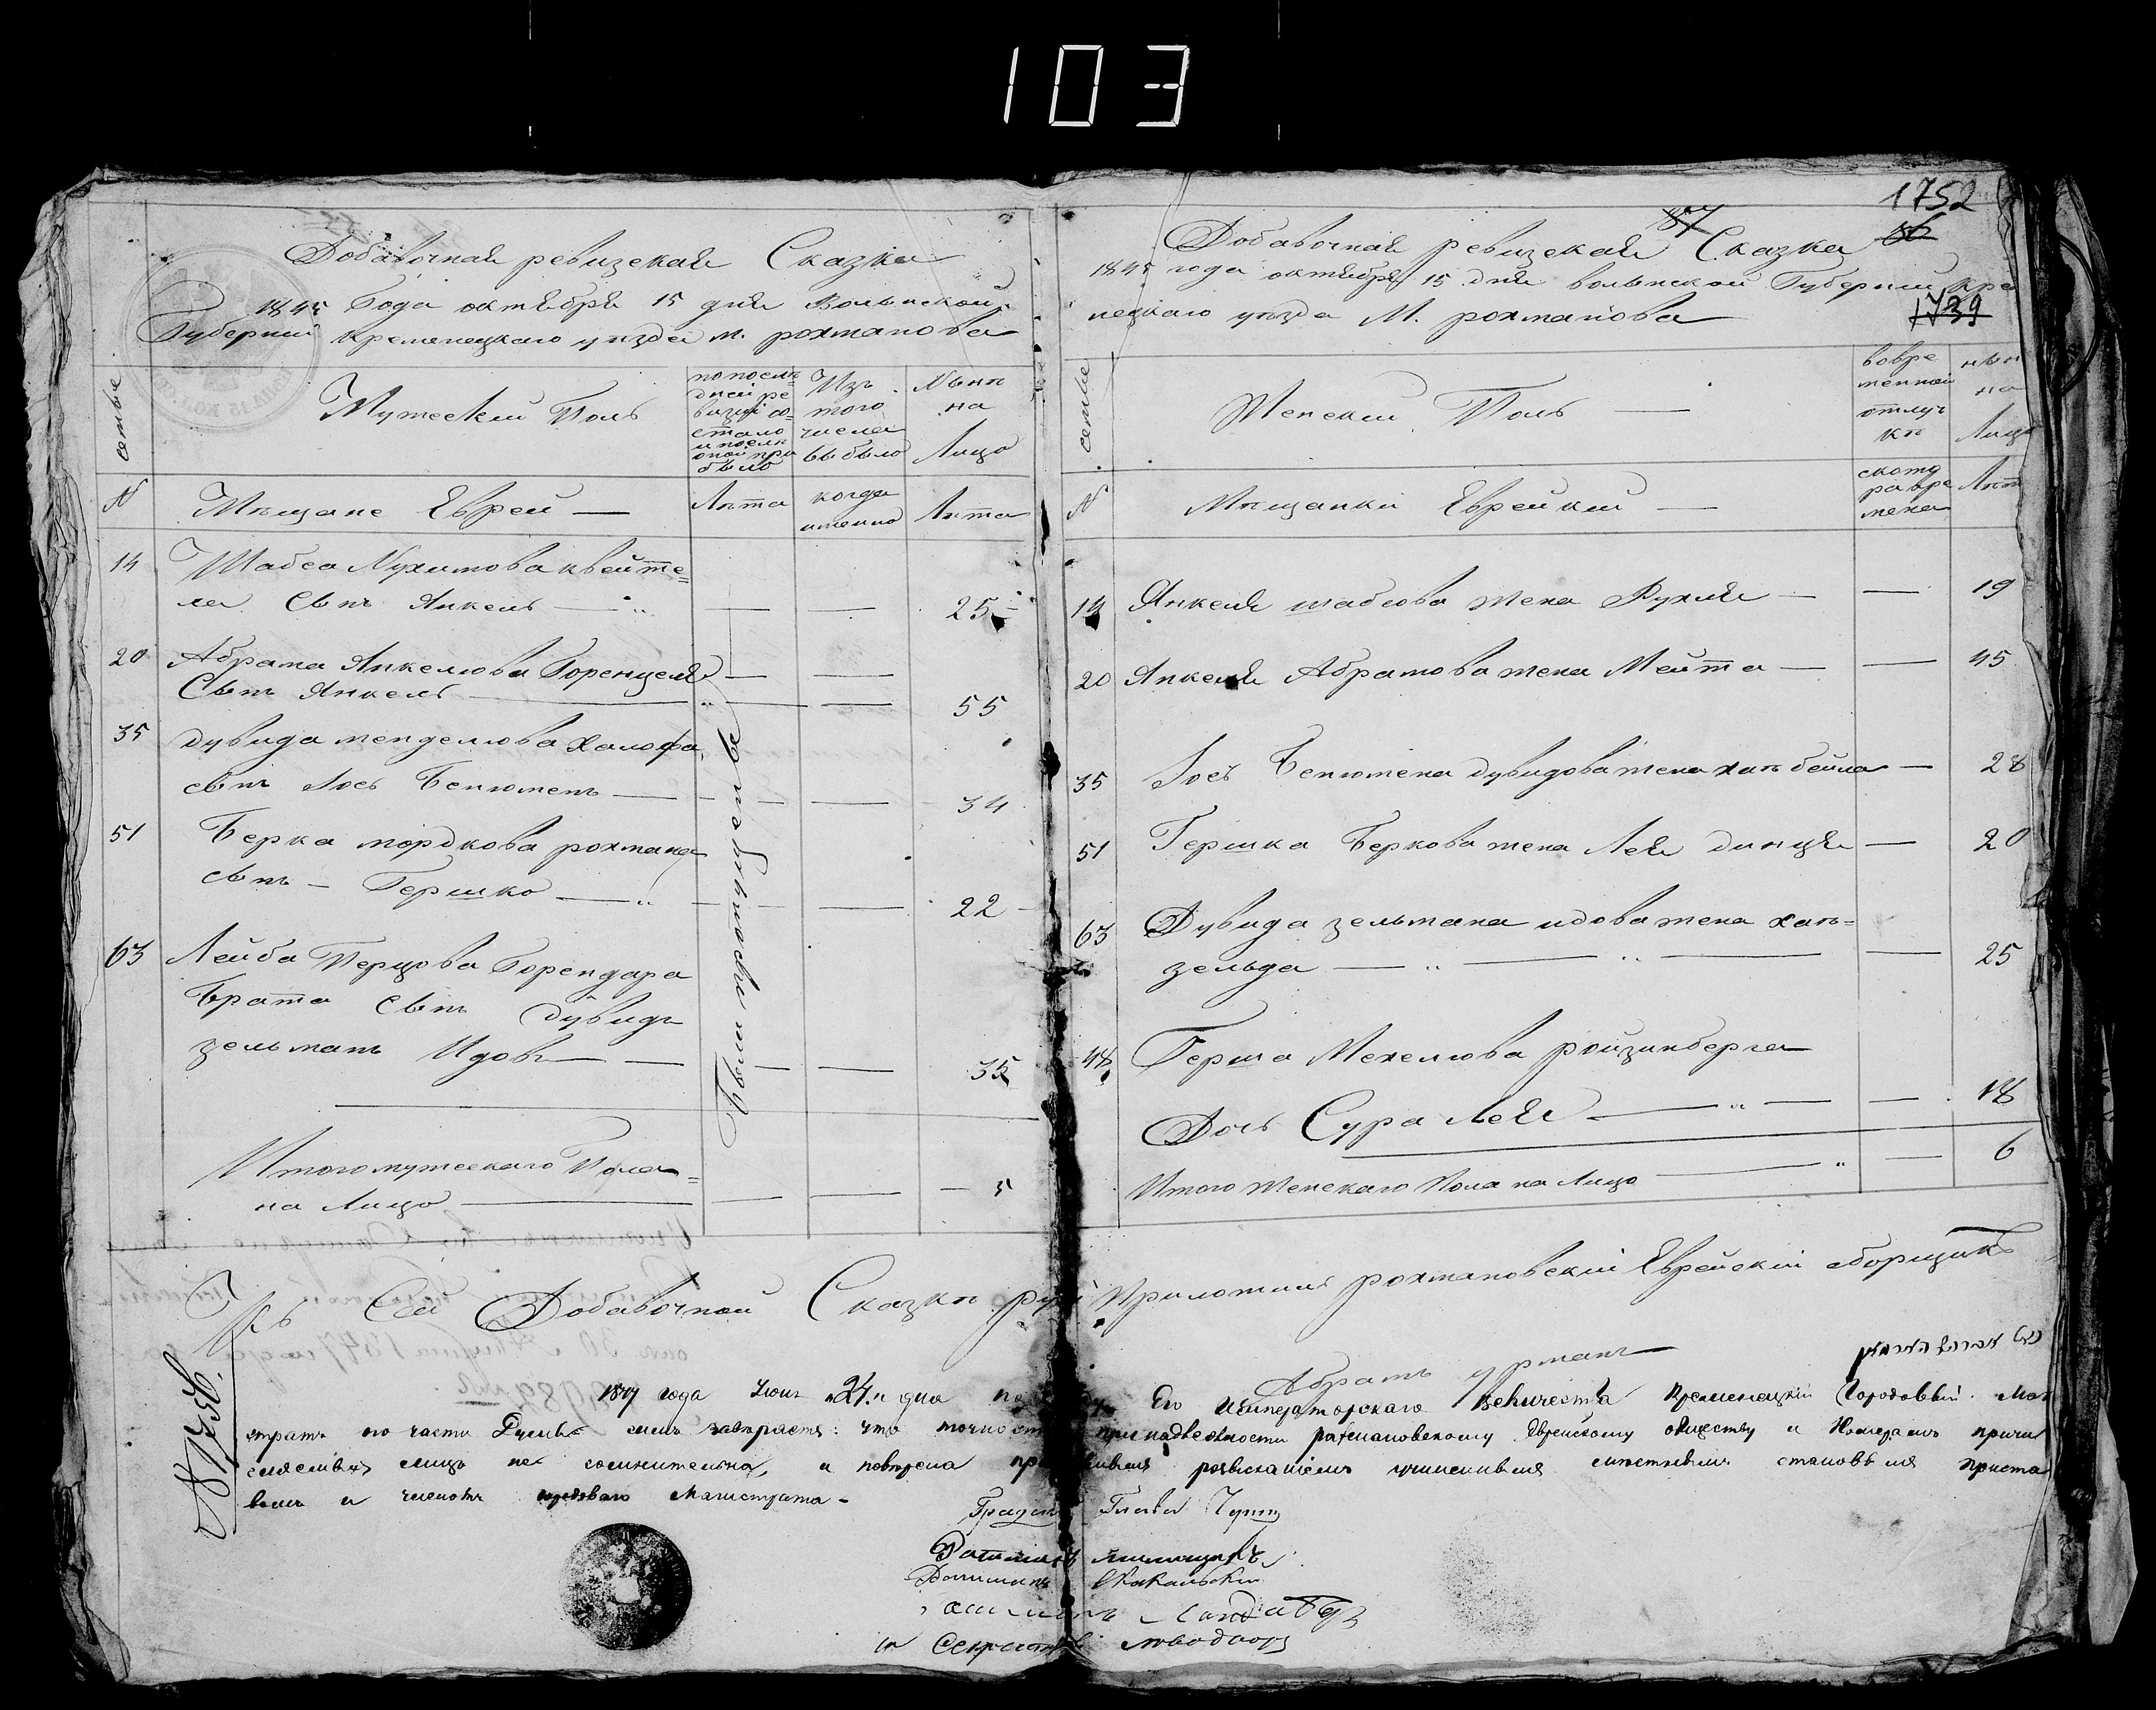 103
Добавочная ревизская Сказка
1845 Года октября 15 дня Волынской
Губерний кременецкаго уѣзда м. рохманова
семье
Мужескій Полъ
по послѣдней ревизіи состояло и послѣ оной прибыло
Изъ того числа выбыло
Нынѣ на Лицо
N
Мѣщане Еврей —
Лѣта
когда именно
Лѣта
14 Шабса Нухимова квейте=
ля Сынъ Янкель — — — 25
20 Абрама Янкелюва Горенцеля — —
Сынъ Янкель — — — 55
35 дувида менделюва Халофа
сынъ Іось Бенюменъ — — — 34
51 Берка мордкова рохмана
сынъ — Гершко — — — 22
63 Лейба Перцова Горендара
Брата Сынъ Дувидъ
зельманъ Идовъ — — — 35
Были пропущены
Итого мужескаго Пола =
на Лицо — — — 5
1752
87
86
Добавочная ревизская Сказка
1845 года октября 15 дня волынской Губерний кре
нецкаго уѣзда М. рохманова
1739
семье
Женскій Полъ —
вовре менной отлучкѣ
нын на Лицо
N
Мѣщанки Еврейкій —
скотораго времена
Лѣт
14 Янкеля шабсова жена Рухля — — 19
20 Янкеля Абрамова жена Мейта — — 45
35 Іось Бенюмена дувидова жена хая бейла — 28
51 Гершка Беркова жена Лея динця — 20
63 Дувида зельмана идова жена хая=
зельда — — — 25
48 Герша Мехелюва ройзинберга
Дочь Сура Лея — — 18
Итого Женскаго Пола на Лицо — — 6
Къ Сей Добавочной Сказкѣ Приложилъ рохмановскій Еврейскій зборщикъ
Абрамъ урманъ
1847 года Іюня 24 дня Его Императорскаго Величества Кременецкій Городовый Маг
стратъ по части Думы симъ завѣряетъ: что точность принадлежности рахмановскому Еврейскому обществу и Номерамъ причи
сленныхъ лицъ не сомнительна, и повѣрена розысканіемъ учиненнымъ мѣстнымъ становымъ приста
вомъ и членомъ Магистрата -
Градск Глава
Ратманъ
Ратманъ
и Секретарь